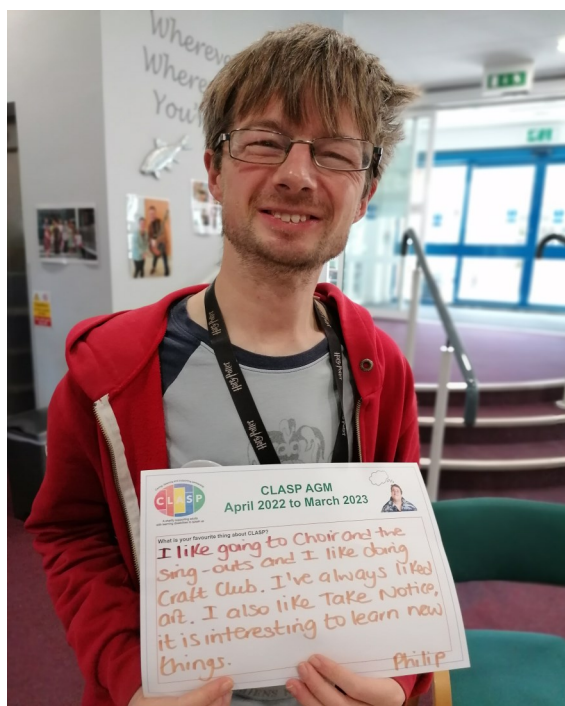 Wherever
Where
You'
Harry Potter
Harry Potter
CLASP
CLASP AGM
April 2022 to March 2023
What is your favourite thing about CLASP?
I like going to Choir and the
sing-outs and I like doing
Craft Club. I've always liked
art. I also like Take Notice,
it is interesting to learn new
things.
Philip